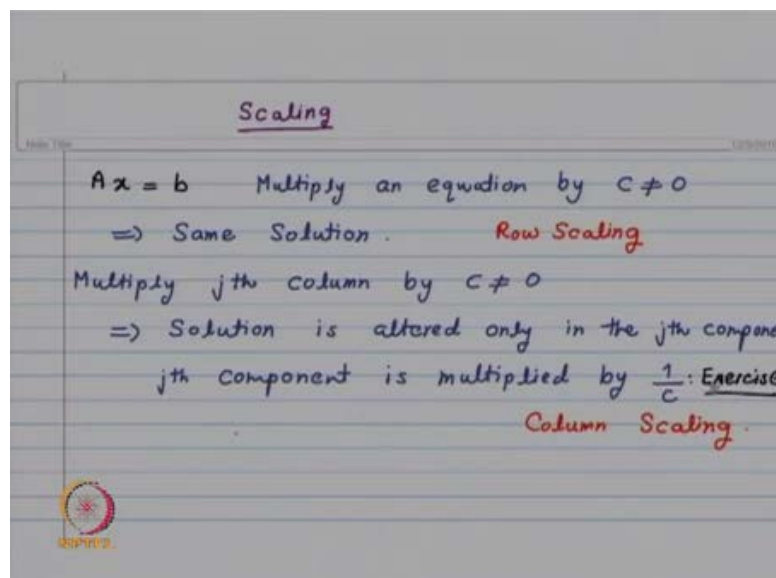 Scaling
Note Title
A x = b Multiply an equation by C ≠ 0
=> Same Solution. Row Scaling
Multiply jth column by C ≠ 0
=> Solution is altered only in the jth compone
jth component is multiplied by 1/C : Exercise
Column Scaling.
NPTEL